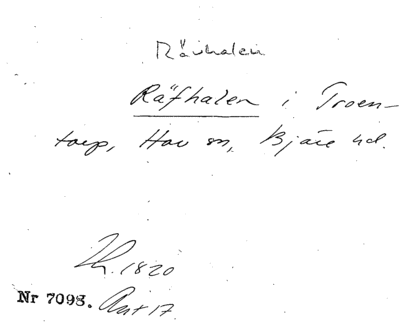 Rävhalen
Räfhalen i Troen-
torp, Hov sn, Bjäre hd.
1820
Nr 7098.